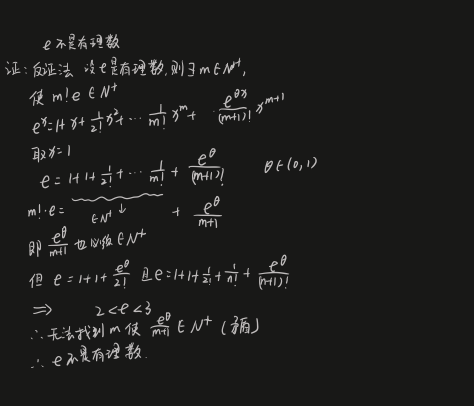 e不是有理数
证:反证法 设e是有理数,则∃m∈N⁺,
使 m!e ∈N⁺
eˣ=1+x+1/2!x²+⋯1/m!xᵐ+ e^(θx)/(m+1)! x^(m+1)
取x=1
e=1+1+1/2!+⋯1/m!+e^θ/(m+1)! θ∈(0,1)
m!·e= ∈N⁺↓ + e^θ/m+1
即 e^θ/m+1 也必须∈N⁺
但 e=1+1+e^θ/2! 且e=1+1+1/2!+1/n!+e^θ/(n+1)!
⇒ 2<e<3
∴无法找到m使 e^θ/m+1 ∈N⁺(矛盾)
∴ e不是有理数.